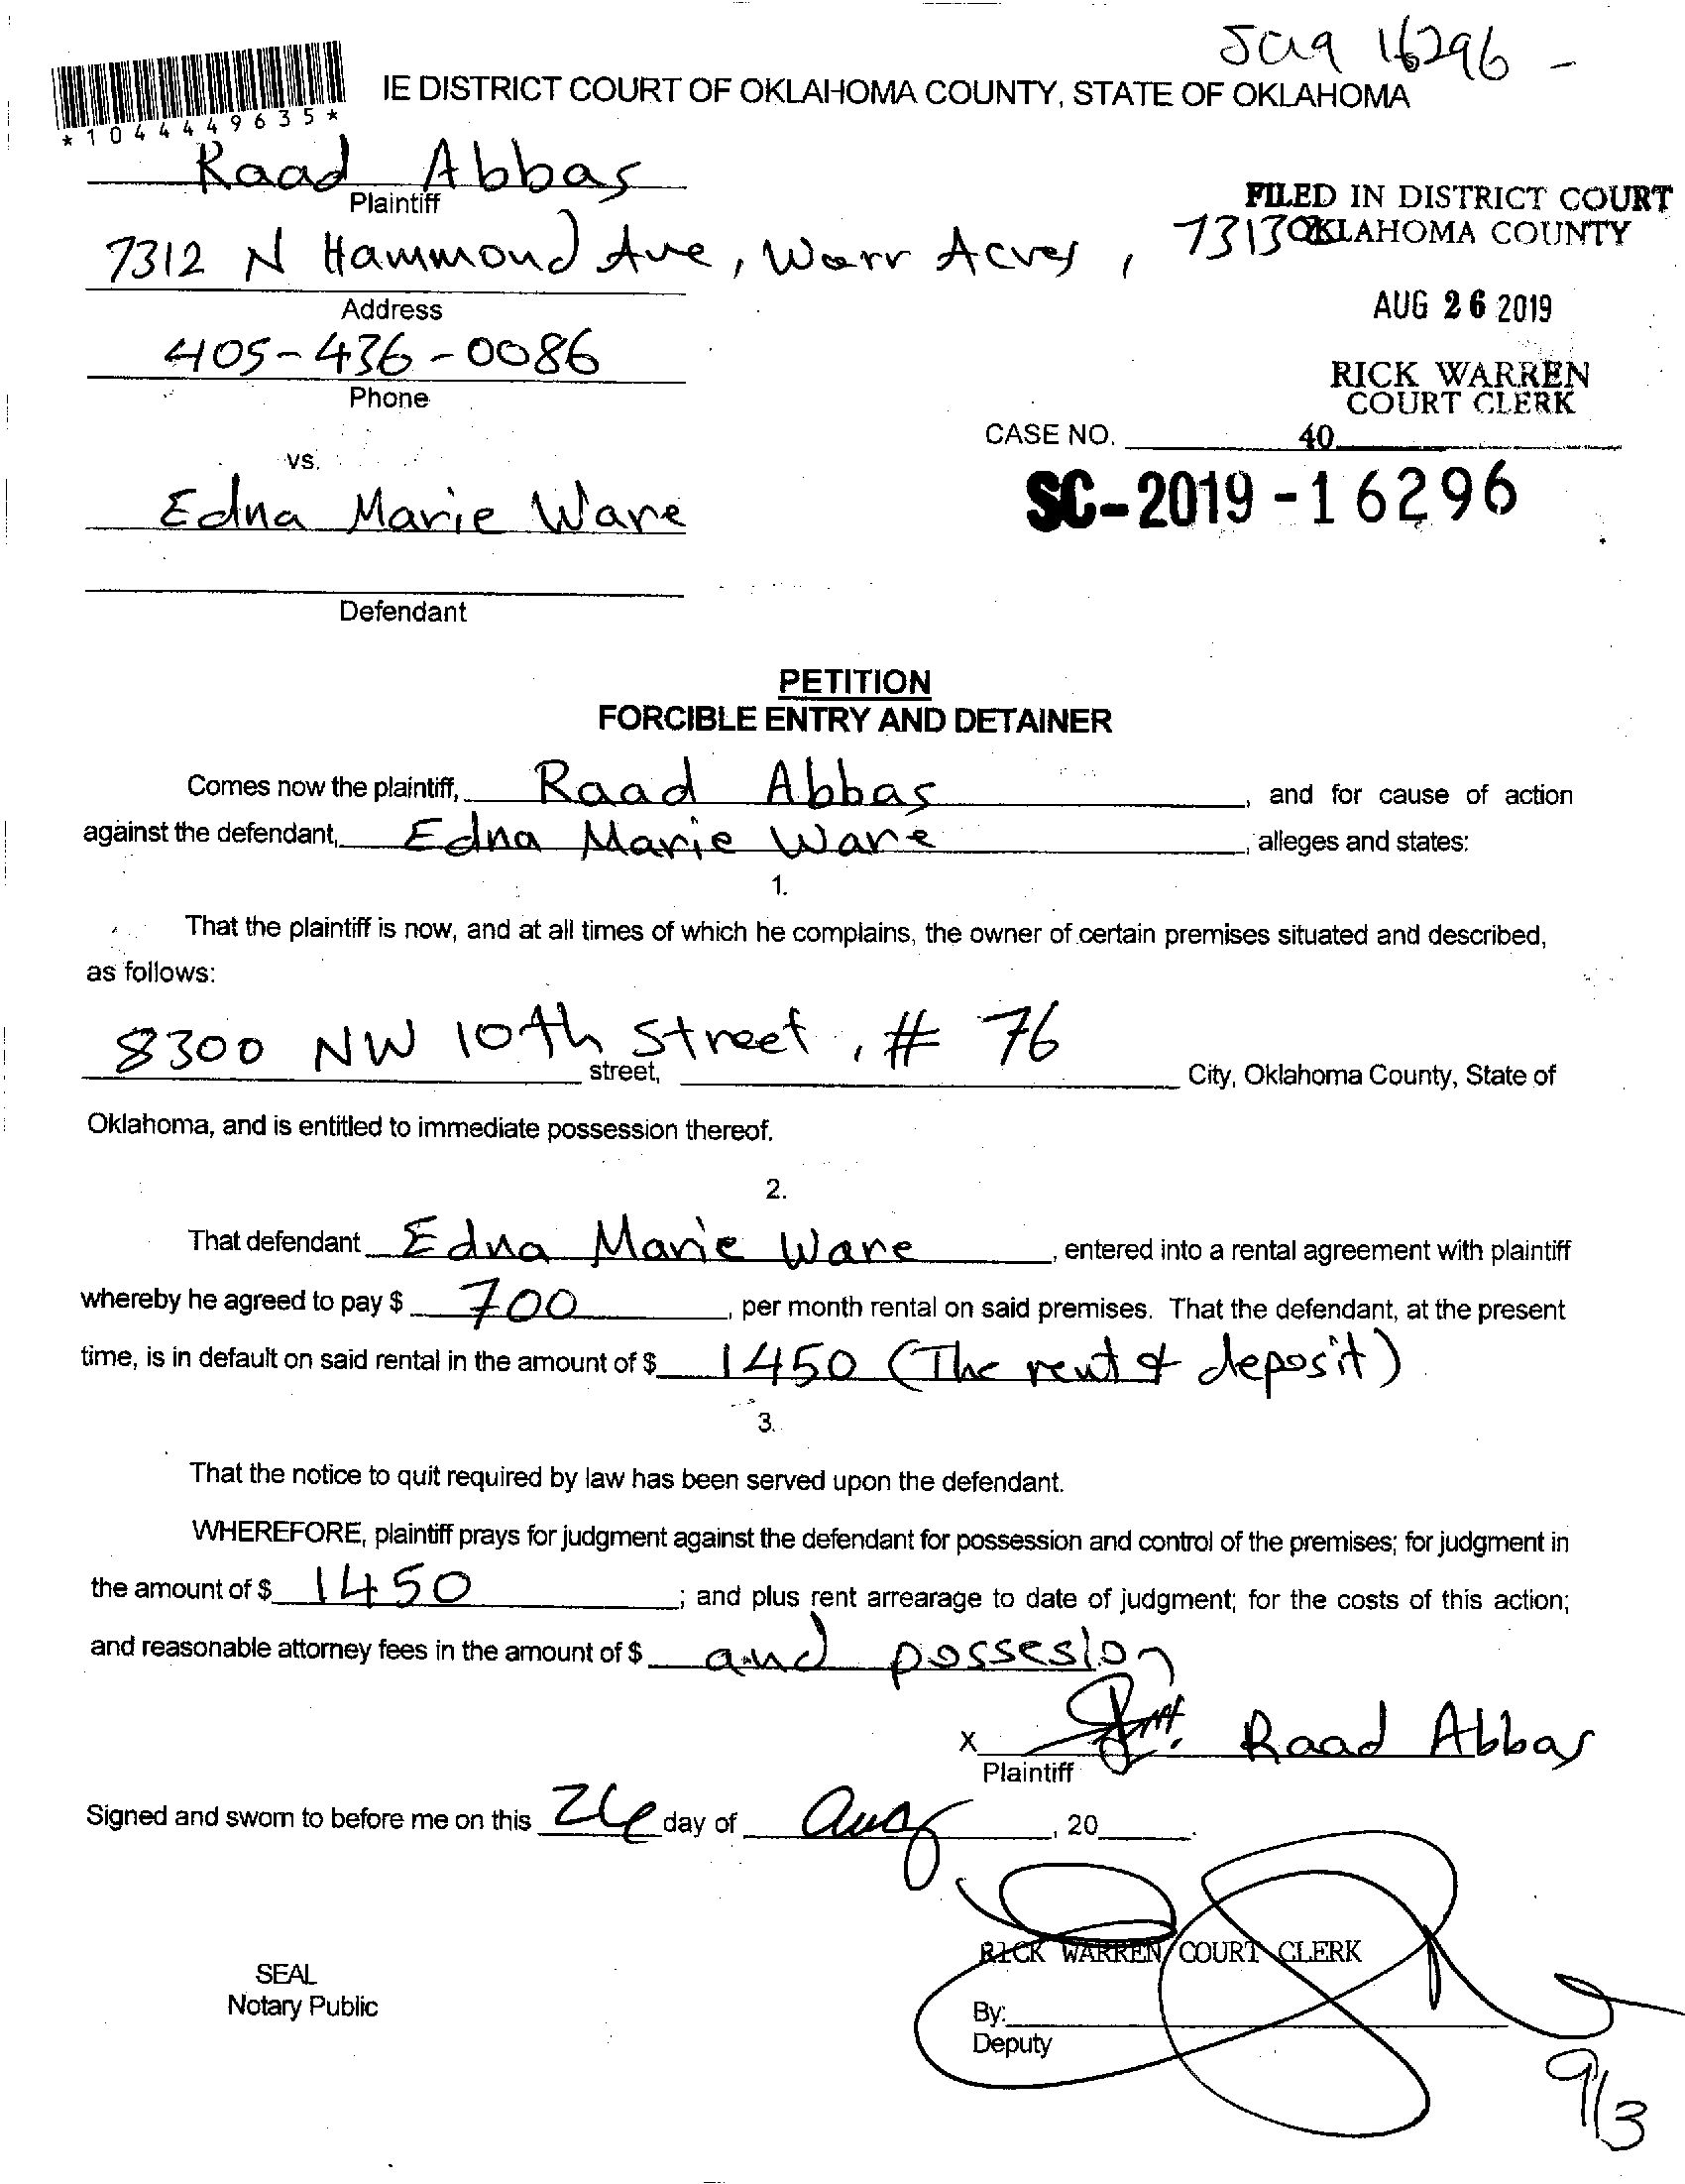 SC19 16296 -
*1044449635*
IE DISTRICT COURT OF OKLAHOMA COUNTY, STATE OF OKLAHOMA
Raad Abbas
Plaintiff
FILED IN DISTRICT COURT
OKLAHOMA COUNTY
7312 N Hammond Ave, Warr Acres, 7313
Address
AUG 26 2019
405-436-0086
Phone
RICK WARREN
COURT CLERK
CASE NO.
40
vs.
SC-2019-16296
Edna Marie Ware
Defendant
PETITION
FORCIBLE ENTRY AND DETAINER
Comes now the plaintiff, Raad Abbas, and for cause of action
against the defendant, Edna Marie Ware, alleges and states:
1.
That the plaintiff is now, and at all times of which he complains, the owner of certain premises situated and described,
as follows:
8300 NW 10th Street, # 76
street, City, Oklahoma County, State of
Oklahoma, and is entitled to immediate possession thereof.
2.
That defendant Edna Marie Ware, entered into a rental agreement with plaintiff
whereby he agreed to pay $ 700, per month rental on said premises. That the defendant, at the present
time, is in default on said rental in the amount of $ 1450 (The rent & deposit)
3.
That the notice to quit required by law has been served upon the defendant.
WHEREFORE, plaintiff prays for judgment against the defendant for possession and control of the premises; for judgment in
the amount of $ 1450; and plus rent arrearage to date of judgment; for the costs of this action;
and reasonable attorney fees in the amount of $ and possesion
X Raad Abbas
Plaintiff
Signed and sworn to before me on this 26 day of Aug, 20
RICK WARREN COURT CLERK
SEAL
Notary Public
By:
Deputy
9/3